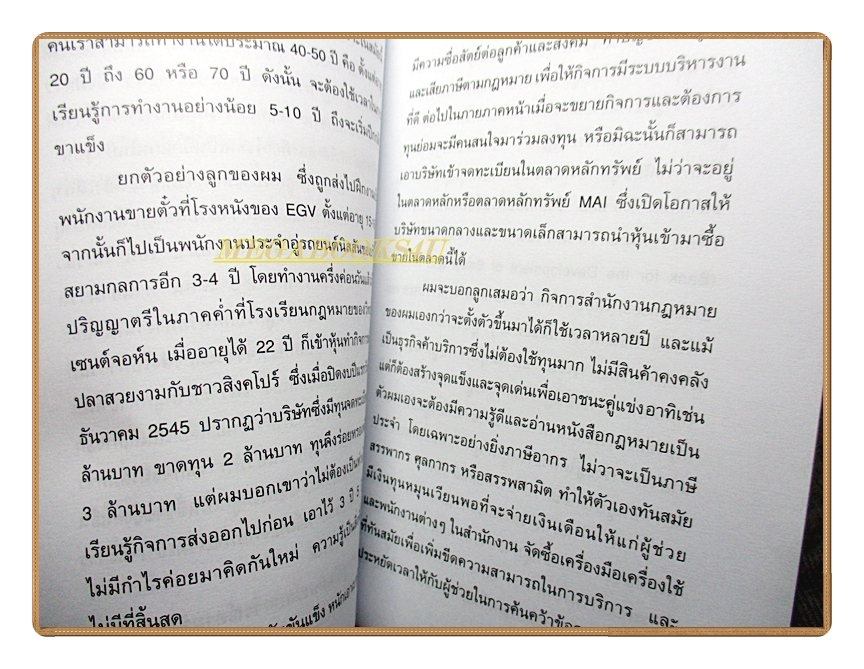 คนเราสามารถทำงานได้ประมาณ 40-50 ปี คือ ตั้งแต่อายุ
20 ปี ถึง 60 หรือ 70 ปี ดังนั้น จะต้องใช้เวลาใน
เรียนรู้การทำงานอย่างน้อย 5-10 ปี ถึงจะเริ่ม
ขาแข็ง
ยกตัวอย่างลูกของผม ซึ่งถูกส่งไปฝึกงาน
พนักงานขายตั๋วที่โรงหนังของ EGV ตั้งแต่อายุ 15
จากนั้นก็ไปเป็นพนักงานประจำอู่รถยนต์
สยามกลการอีก 3-4 ปี โดยทำงานครึ่งค่อนวัน
ปริญญาตรีในภาคค่ำที่โรงเรียนกฎหมายของ
เซนต์จอห์น เมื่ออายุได้ 22 ปี ก็เข้าหุ้นทำกิจการ
ปลาสวยงามกับชาวสิงคโปร์ ซึ่งเมื่อปิดงบปีแรก
ธันวาคม 2545 ปรากฏว่าบริษัทซึ่งมีทุนจดทะเบียน
ล้านบาท ขาดทุน 2 ล้านบาท ทุนจึงร่อยหรอ
3 ล้านบาท แต่ผมบอกเขาว่าไม่ต้องเป็นห่วง
เรียนรู้กิจการส่งออกไปก่อน เอาไว้ 3 ปี 5
ไม่มีกำไรค่อยมาคิดกันใหม่ ความรู้เป็น
ไม่มีที่สิ้นสุด
มีความซื่อสัตย์ต่อลูกค้าและสังคม
และเสียภาษีตามกฎหมาย เพื่อให้กิจการมีระบบบริหารงาน
ที่ดี ต่อไปในภายภาคหน้าเมื่อจะขยายกิจการและต้องการ
ทุนย่อมจะมีคนสนใจมาร่วมลงทุน หรือมิฉะนั้นก็สามารถ
เอาบริษัทเข้าจดทะเบียนในตลาดหลักทรัพย์ ไม่ว่าจะอยู่
ในตลาดหลักหรือตลาดหลักทรัพย์ MAI ซึ่งเปิดโอกาสให้
บริษัทขนาดกลางและขนาดเล็กสามารถนำหุ้นเข้ามาซื้อ
ขายในตลาดนี้ได้
ผมจะบอกลูกเสมอว่า กิจการสำนักงานกฎหมาย
ของผมเองกว่าจะตั้งตัวขึ้นมาได้ก็ใช้เวลาหลายปี และแม้
เป็นธุรกิจค้าบริการซึ่งไม่ต้องใช้ทุนมาก ไม่มีสินค้าคงคลัง
แต่ก็ต้องสร้างจุดแข็งและจุดเด่นเพื่อเอาชนะคู่แข่งอาทิเช่น
ตัวผมเองจะต้องมีความรู้ดีและอ่านหนังสือกฎหมายเป็น
ประจำ โดยเฉพาะอย่างยิ่งภาษีอากร ไม่ว่าจะเป็นภาษี
สรรพากร ศุลกากร หรือสรรพสามิต ทำให้ตัวเองทันสมัย
มีเงินทุนหมุนเวียนพอที่จะจ่ายเงินเดือนให้แก่ผู้ช่วย
และพนักงานต่างๆ ในสำนักงาน จัดซื้อเครื่องมือเครื่องใช้
ที่ทันสมัยเพื่อเพิ่มขีดความสามารถในการบริการ และ
ประหยัดเวลาให้กับผู้ช่วยในการค้นคว้า
MEGABOOKS4U